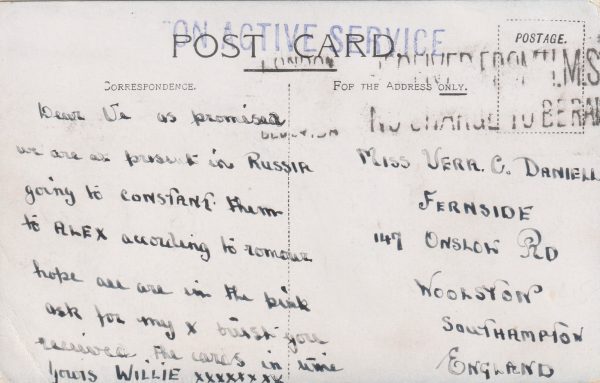 ON ACTIVE SERVICE
POST CARD
LONDON
RECEIVED FROM H.M.S
NO CHARGE TO BE RAI
POSTAGE.
CORRESPONDENCE.
FOR THE ADDRESS ONLY.
Dear Ve as promised
we are at present in RUSSIA
going to CONSTANT. them
to ALEX according to romour
hope all are in the pink
ask for my x trust you
received the cards in time
Yours WILLIE xxxxxxxx
MISS VERA. C. DANIELL
FERNSIDE
147 ONSLOW RD
WOOLSTON
SOUTHAMPTON
ENGLAND